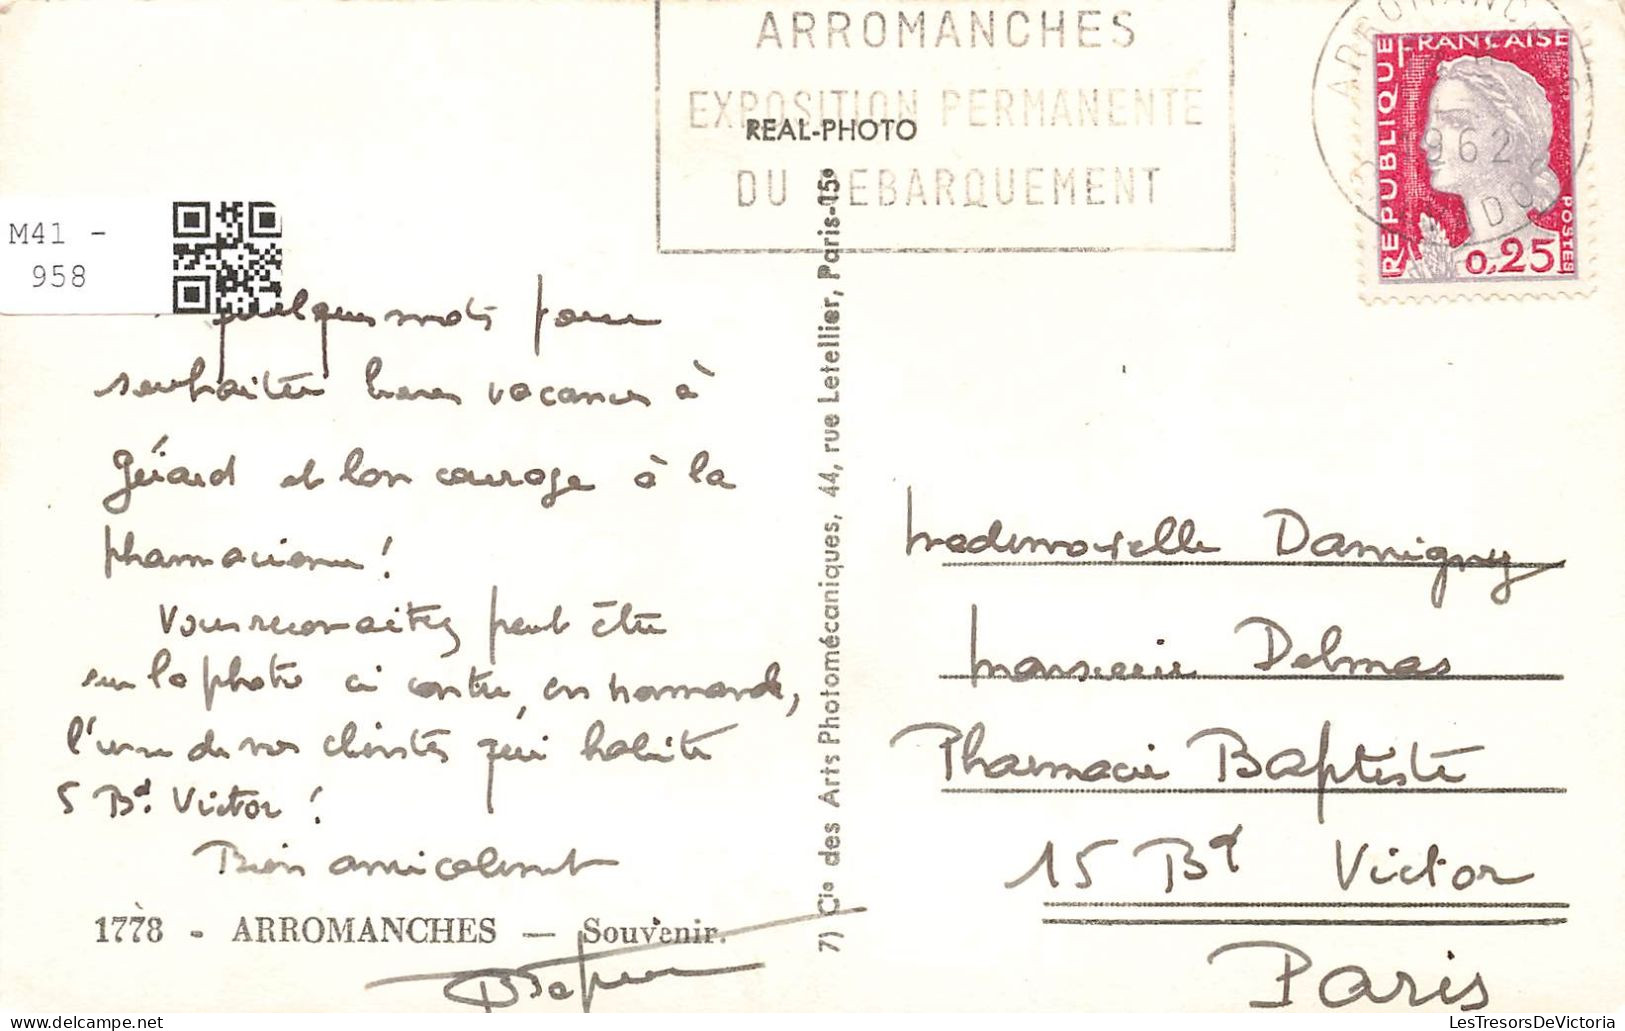 ARROMANCHES
EXPOSITION PERMANENTE
DU DEBARQUEMENT
REAL-PHOTO
ARROMANCHES
1962
CALVADOS
REPUBLIQUE FRANÇAISE
POSTES
0,25
M41 -
958
quelques mots pour
souhaiter bonnes vacances à
Gérard et bon courage à la
pharmacienne!
Vous reconnaitrez peut être
sur la photo ci contre, en normande,
l'une de nos clientes qui habite
5 Bd. Victor!
Bien amicalement
1778 - ARROMANCHES — Souvenir.
7) Cie des Arts Photomécaniques, 44, rue Letellier, Paris-15e
Mademoiselle Damigny
Monsieur Delmas
Pharmacie Baptiste
15 Bd Victor
Paris
LesTresorsDeVictoria